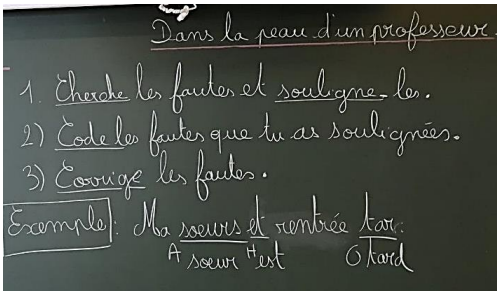 Dans la peau d'un professeur.
1. Cherche les fautes et souligne-les.
2) Code les fautes que tu as soulignées.
3) Corrige les fautes.
Exemple : Ma soeurs et rentrée tar.
A soeur H est O tard